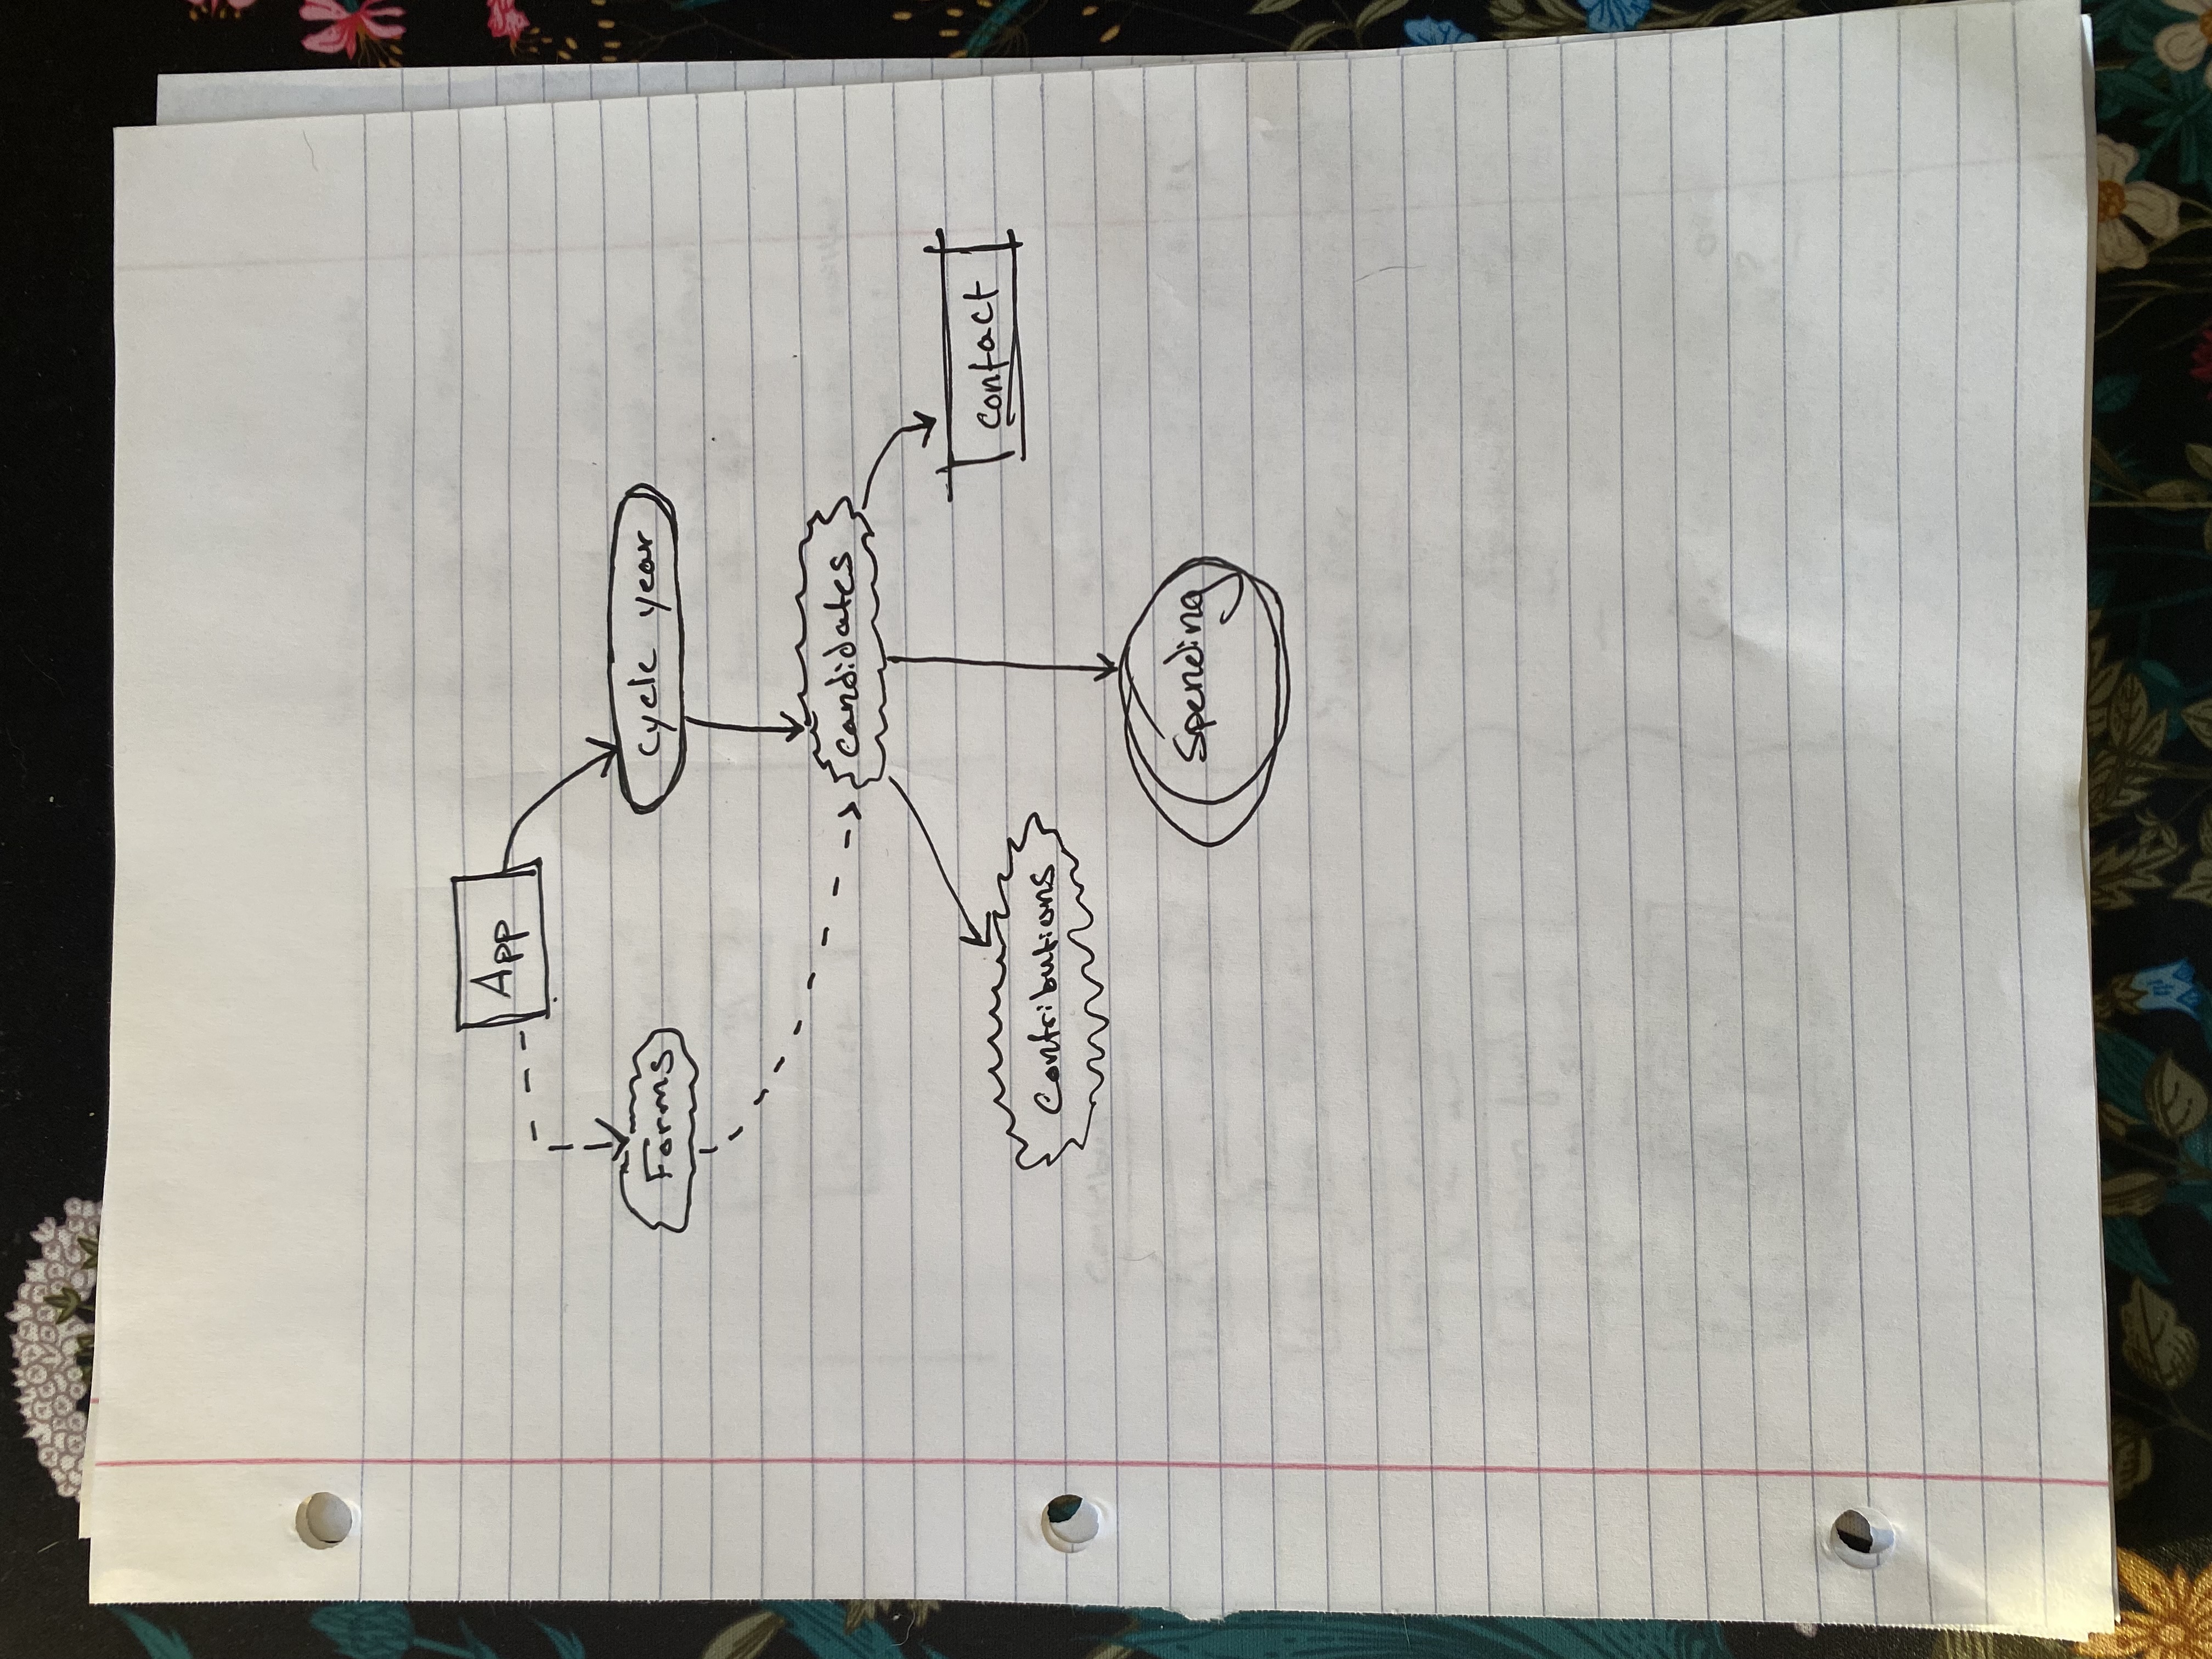 App
Forms
cycle year
candidates
contact
Contributions
Spending